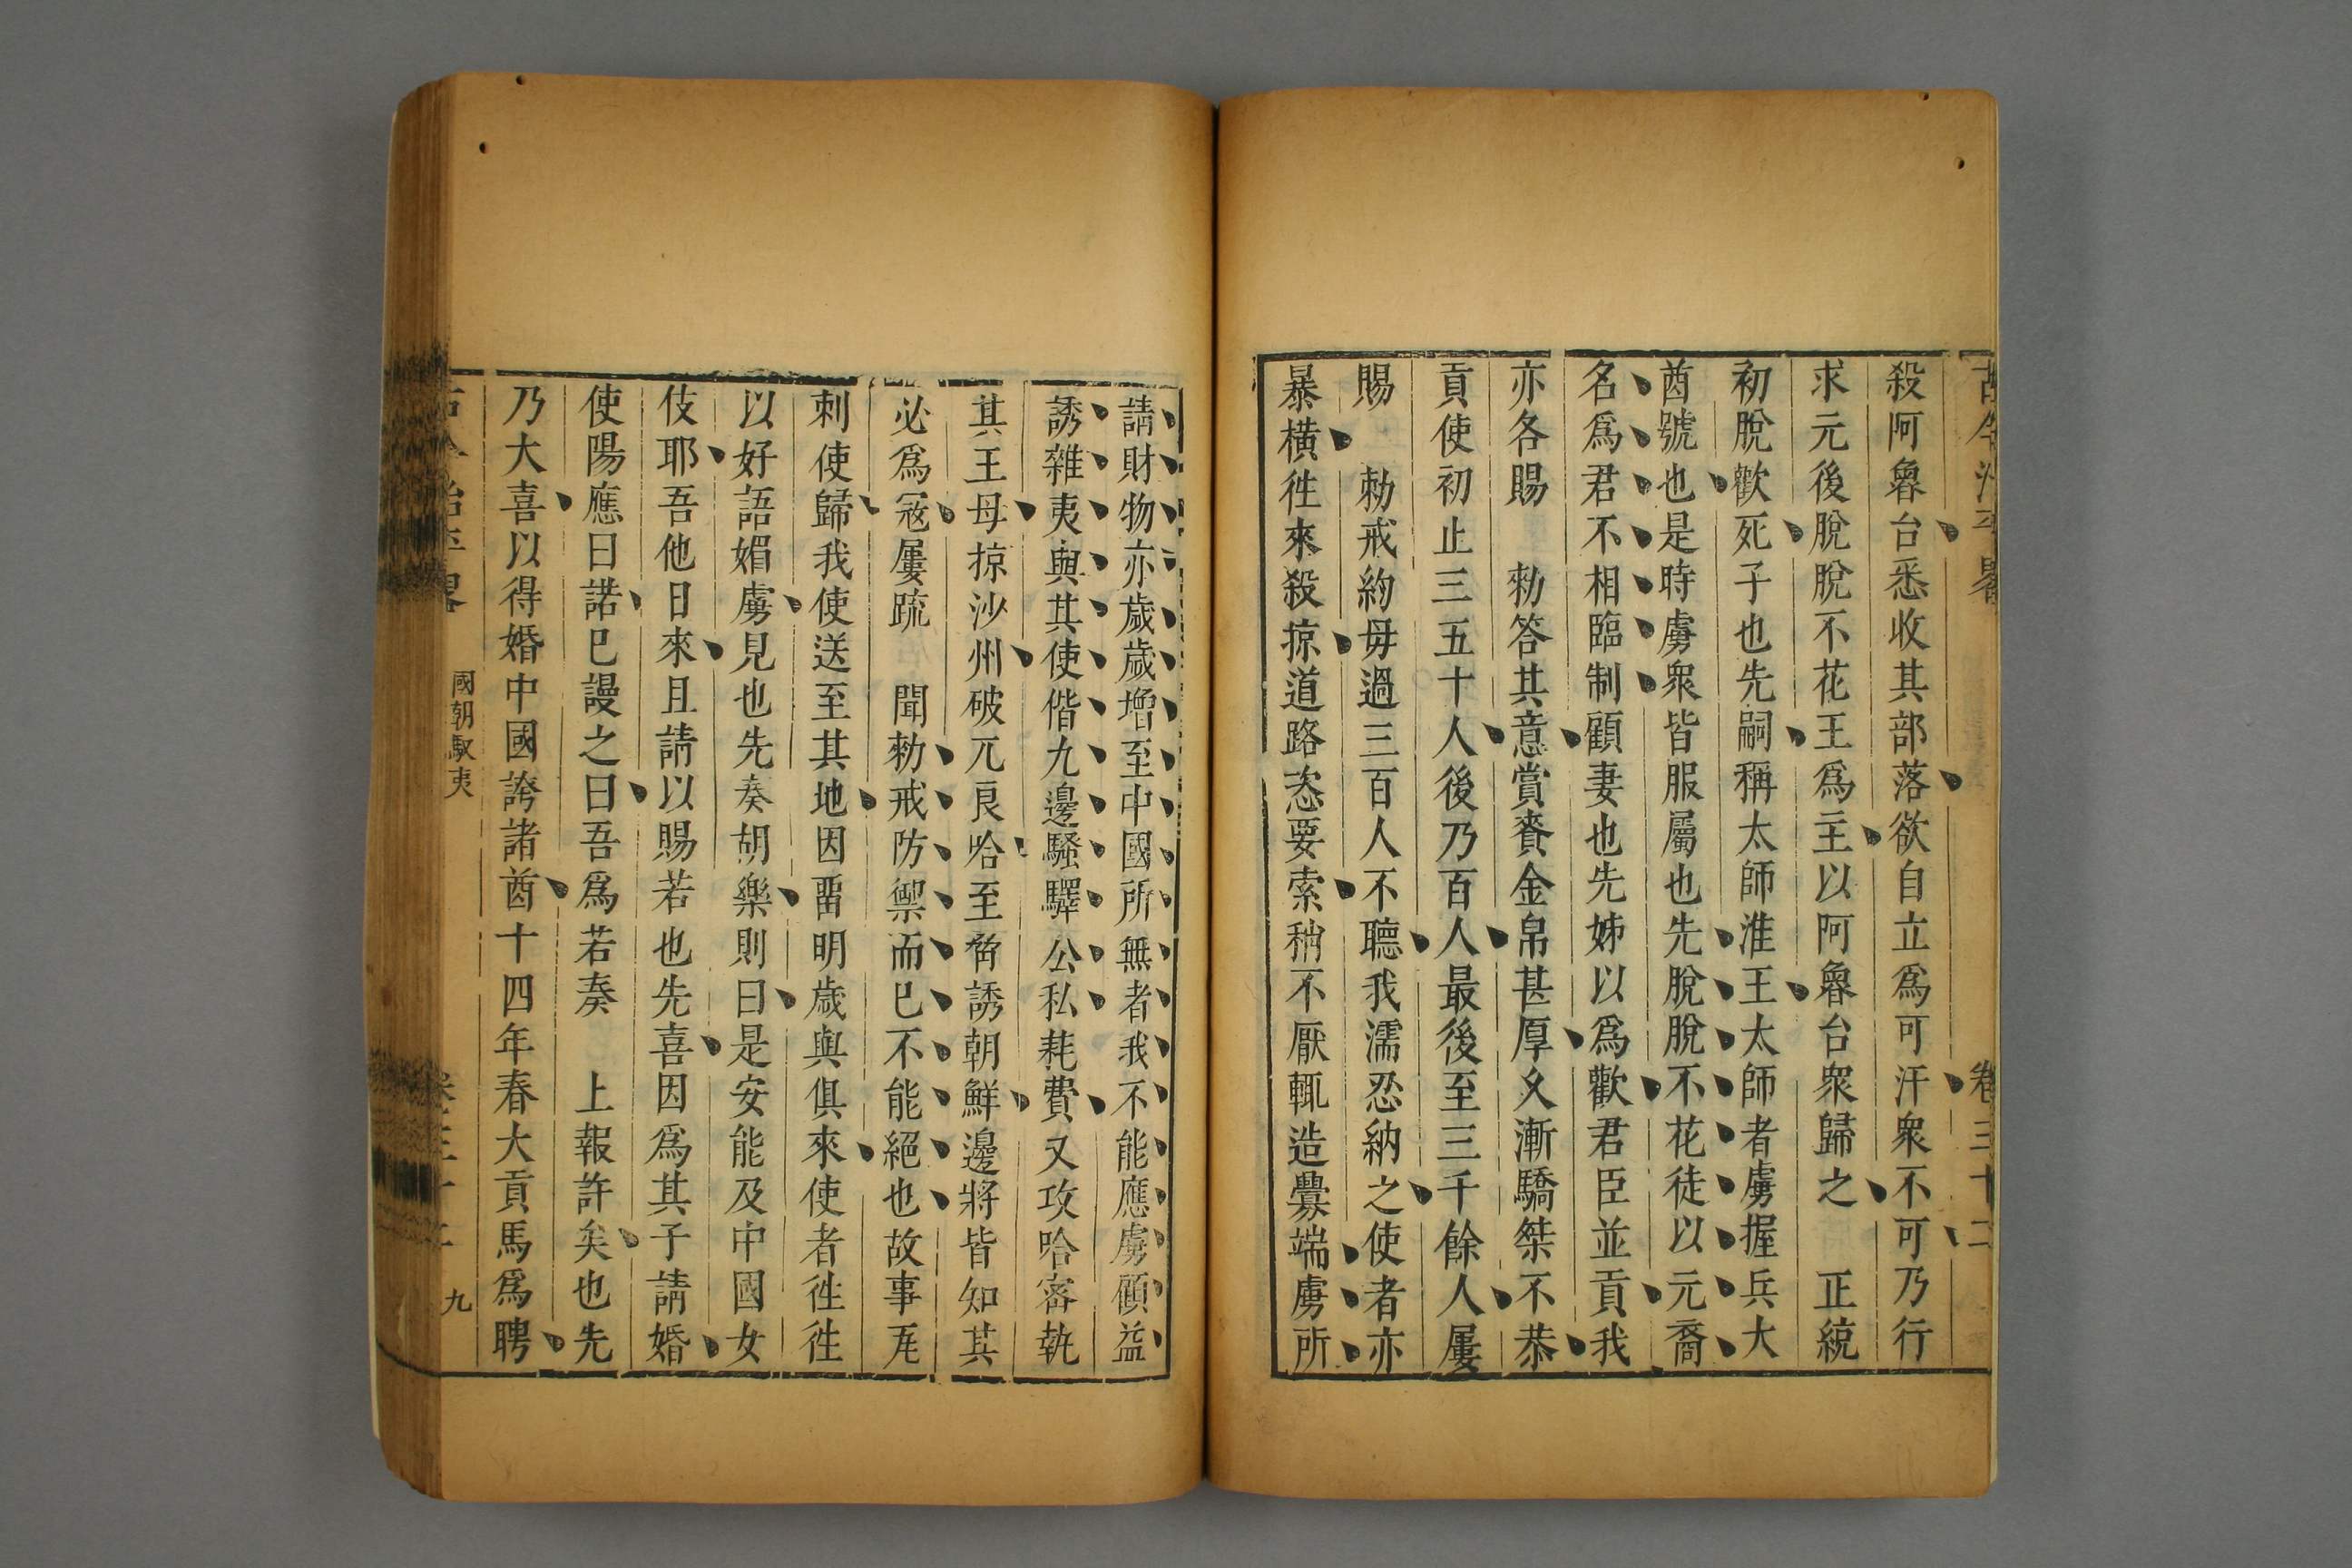 古今治平畧 卷三十二
殺阿魯台悉收其部落欲自立爲可汗衆不可乃行
求元後脫脫不花王爲主以阿魯台衆歸之 正統
初脫歡死子也先嗣稱太師淮王太師者虜握兵大
酋號也是時虜衆皆服屬也先脫脫不花徒以元裔
名爲君不相臨制顧妻也先姊以爲歡君臣並貢我
亦各賜 勅答其意賞賚金帛甚厚久漸驕桀不恭
貢使初止三五十人後乃百人最後至三千餘人屢
賜 勅戒約毋過三百人不聽我濡忍納之使者亦
暴橫徃來殺掠道路恣要索稍不厭輒造釁端虜所
請財物亦歲歲增至中國所無者我不能應虜願益
誘雜夷與其使偕九邊騷驛公私耗費又攻哈密執
其王母掠沙州破兀良哈至脅誘朝鮮邊將皆知其
必爲寇屢疏 聞勅戒防禦而已不能絕也故事瓦
刺使歸我使送至其地因畱明歲與俱來使者徃徃
以好語媚虜見也先奏胡樂則曰是安能及中國女
伎耶吾他日來且請以賜若也先喜因爲其子請婚
使陽應曰諾已謾之曰吾爲若奏 上報許矣也先
乃大喜以得婚中國誇諸酋十四年春大貢馬爲聘
國朝馭夷 九